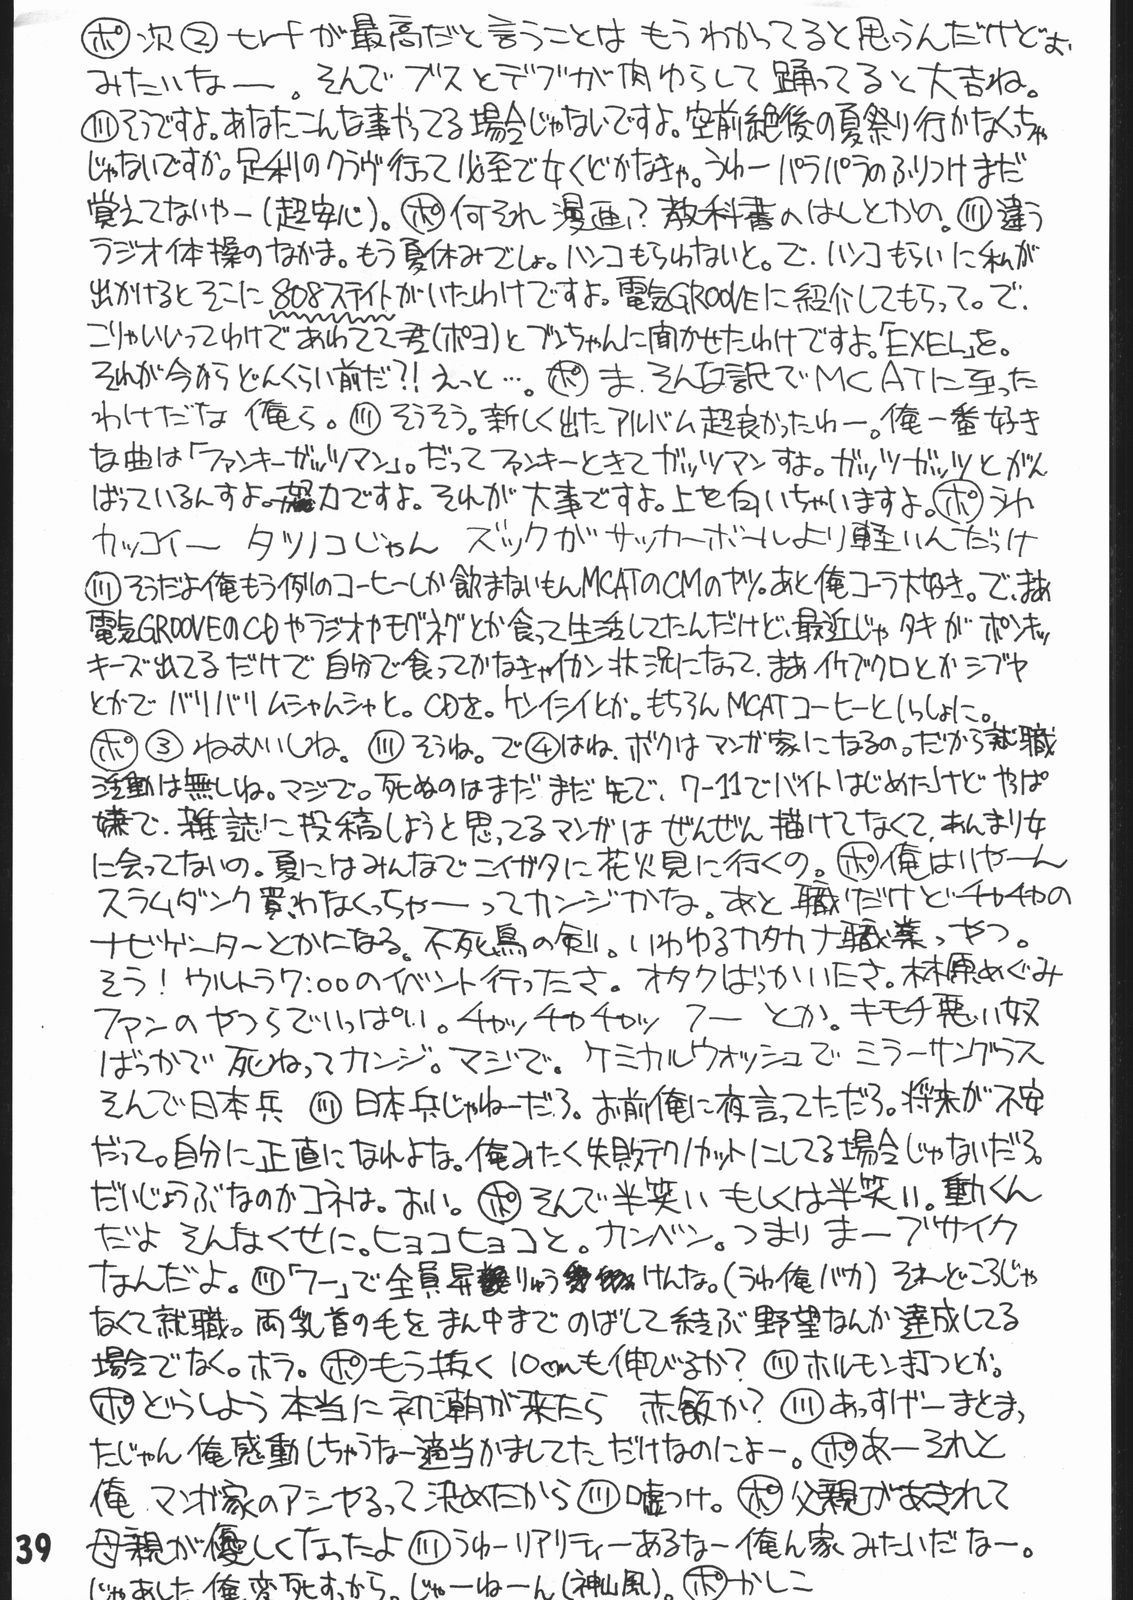 ポ 次② trfが最高だと言うことは もうわかってると思うんだけどぉ
みたいなー。そんで ブスとデブが肉ゆらして 踊ってると大吉ね。
川 そうですよ。あなたこんな事やってる場合じゃないですよ。空前絶後の夏祭り行かなくっちゃ
じゃないですか。足利のクラヴ行って必至で女くどかなきゃ。うわー パラパラのふりつけまだ
覚えてないやー(超安心)。ポ 何それ 漫画? 教科書のはしとかの。川 違う
ラジオ体操のなかま。もう夏休みでしょ。ハンコもらわないと。で、ハンコもらいに私が
出かけるとそこに 808ステイトがいたわけですよ。電気GROOVEに紹介してもらって。で、
こりゃいいってわけで あわてて君(ポヨ)とブンちゃんに聞かせたわけですよ。「EXEL」を。
それが今からどんくらい前だ?!えっと…。ポ ま、そんな訳でMCATに至った
わけだな 俺ら。川 そうそう。新しく出たアルバム超良かったわー。俺一番好き
な曲は「ファンキーガッツマン」。だってファンキーときてガッツマンすよ。ガッツガッツとがん
ばっているんすよ。努力ですよ。それが大事ですよ。上を向いちゃいますよ。ポ うわ
カッコイー タツノコじゃん ズックがサッカーボールより軽いんだっけ
川 そうだよ俺もう例のコーヒーしか飲まないもんMCATのCMのヤツ。あと俺コーラ大好き。で、まぁ
電気GROOVEのCDやラジオやモグネグとか食って生活してたんだけど、最近じゃタキがポンキッ
キーズ出てるだけで自分で食ってかなきゃイカン状況になって、まあイケブクロとかシブヤ
とかでバリバリムシャムシャと。CDを。ケンイシイとか。もちろんMCATコーヒーといっしょに。
ポ ③ ねむいしね。川 そうね。で④はね、ボクはマンガ家になるの。だから就職
活動は無しね。マジで。死ぬのはまだまだ先で、ワー11でバイトはじめたけどやっぱ
嫌で、雑誌に投稿しようと思ってるマンガはぜんぜん描けてなくて、あんまり女
に会ってないの。夏にはみんなでニイガタに花火見に行くの。ポ 俺はいやーん
スラムダンク買わなくっちゃーってカンジかな。あと職だけどチャチャの
ナビゲーターとかになる。不死鳥の剣。いわゆるカタカナ職業っやつ。
そう!ウルトラ7:00のイベント行ったさ。オタクばっかいたさ。林原めぐみ
ファンのやつらでいっぱい。チャッチャチャッ フー とか。キモチ悪い奴
ばっかで死ねってカンジ。マジで。ケミカルウォッシュでミラーサングラス
そんで日本兵 川 日本兵じゃねーだろ。お前俺に夜言ってただろ。将来が不安
だって。自分に正直になれよな。俺みたく失敗テクノカットにしてる場合じゃないだろ。
だいじょうぶなのかコネは。おい。ポ そんで半笑い もしくは半笑い。動くん
だよ そんなくせに。ヒョコヒョコと。カンベン。つまり まーブサイク
なんだよ。川「ワー」で全員昇りゅうけんな。(うわ俺バカ) それどころじゃ
なくて就職。両乳首の毛をまん中までのばして結ぶ野望なんか達成してる
場合でなく。ホラ。ポ もう抜く 10cmも伸びるか? 川 ホルモン打つとか。
ポ どうしよう 本当に初潮が来たら 赤飯か? 川 あっすげーまとまっ
たじゃん 俺感動しちゃうなー適当かましてた だけなのによー。ポ あーそれと
俺 マンガ家のアシやるって決めたから 川 嘘つけ。ポ 父親があきれて
母親が優しくなったよ 川 うわーリアリティーあるなー俺ん家みたいだなー。
じゃあした俺変死すっから。じゃーねーん(神山風)。ポ かしこ
39